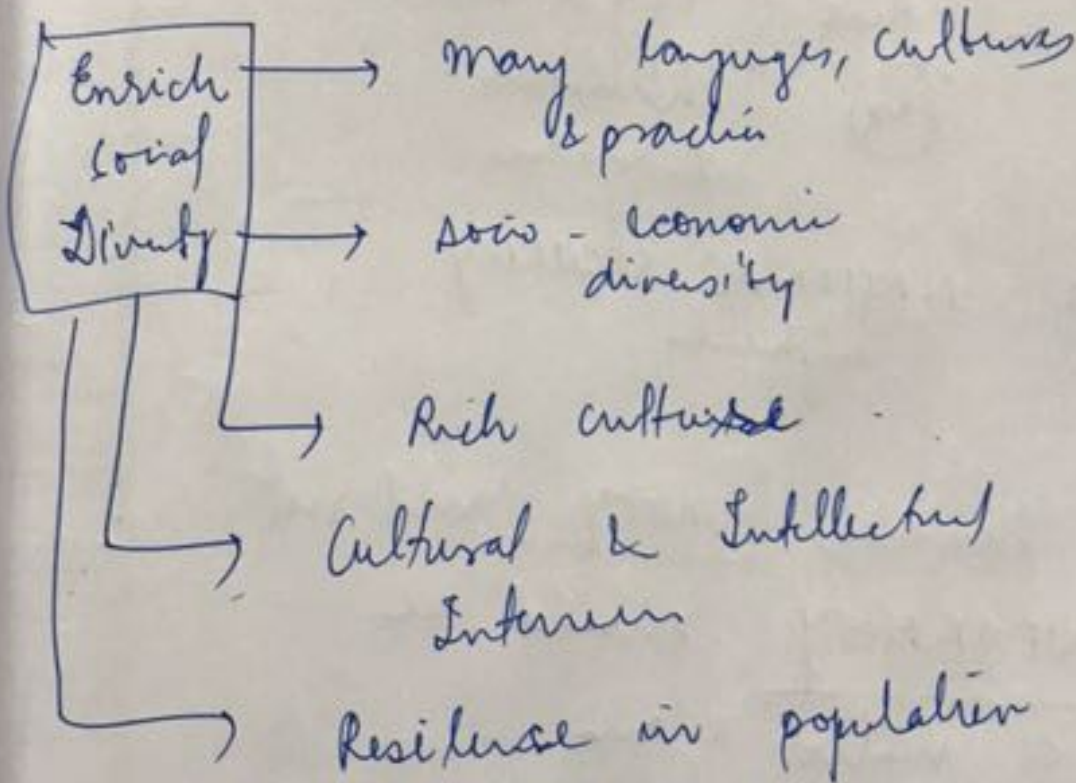 Enrich
Social
Diversity
Many languages, cultures
& practices
socio - economic
diversity
Rich culture
Cultural & Intellectual
Resilience in population